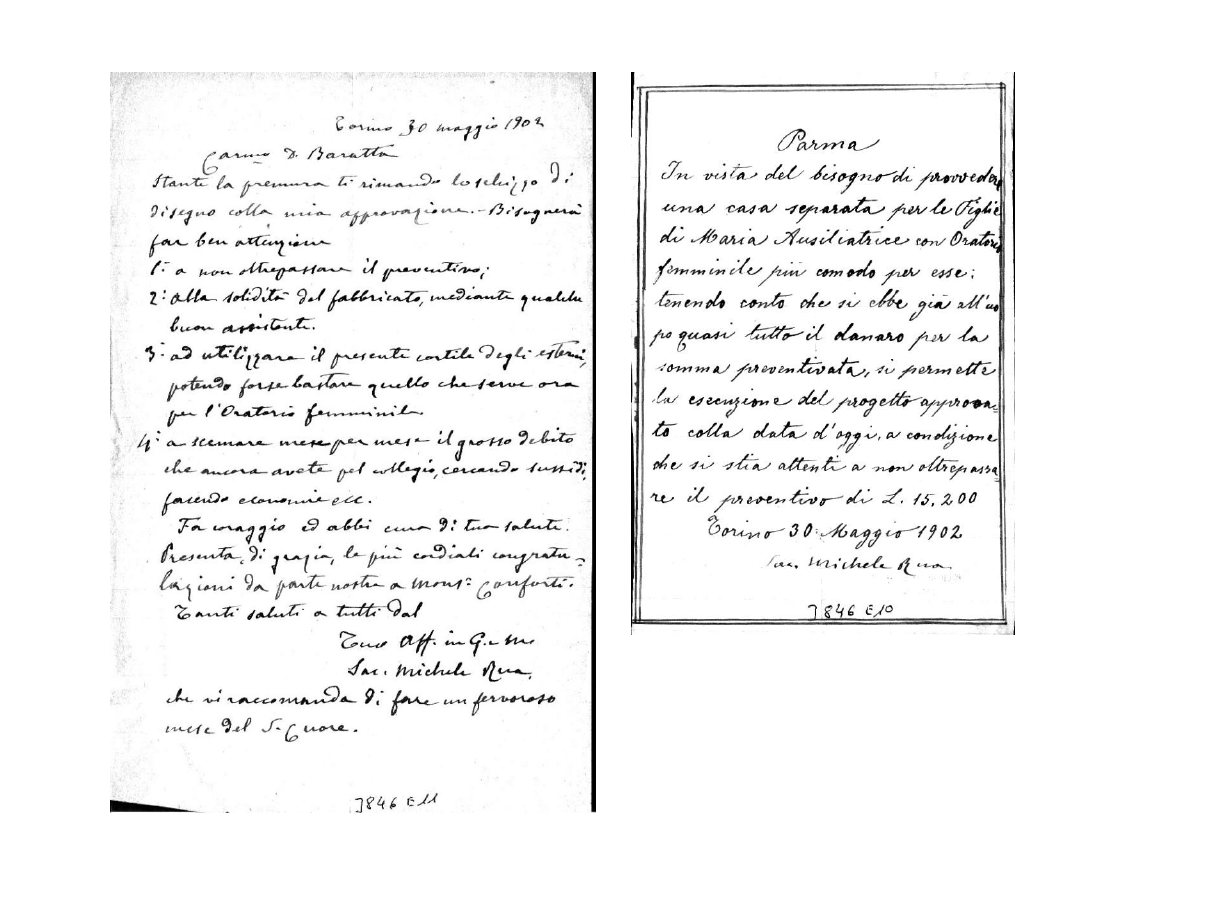 Torino 30 maggio 1902
Carmo D. Baratta
Stante la premura ti rimando lo schizzo di
disegno colla mia approvazione. - Bisognerà
far ben attenzione
1º: a non oltrepassare il preventivo;
2º: alla solidità del fabbricato, mediante qualche
buon assistente.
3º: ad utilizzare il presente cortile degli esterni,
potendo forse bastare quello che serve ora
per l'Oratorio femminile
4º: a scemare mese per mese il grosso debito
che ancora avete pel collegio, cercando sussidi,
facendo economie ecc.
Fa coraggio ed abbi cura di tua salute.
Presenta, di grazia, le più cordiali congratu=
lazioni da parte nostra a Monsr Conforti.
Tanti saluti a tutti dal
Tuo Aff. in G. e M.
Sac. Michele Rua,
che vi raccomanda di fare un fervoroso
mese del S. Cuore.
J846 E11
Parma
In vista del bisogno di provvedere
una casa separata per le Figlie
di Maria Ausiliatrice con Oratorio
femminile più comodo per esse;
tenendo conto che si ebbe già all'uo
po quasi tutto il danaro per la
somma preventivata, si permette
la esecuzione del progetto approva=
to colla data d'oggi, a condizione
che si stia attenti a non oltrepassa=
re il preventivo di L. 15,200
Torino 30 Maggio 1902
Sac. Michele Rua
J846 E10